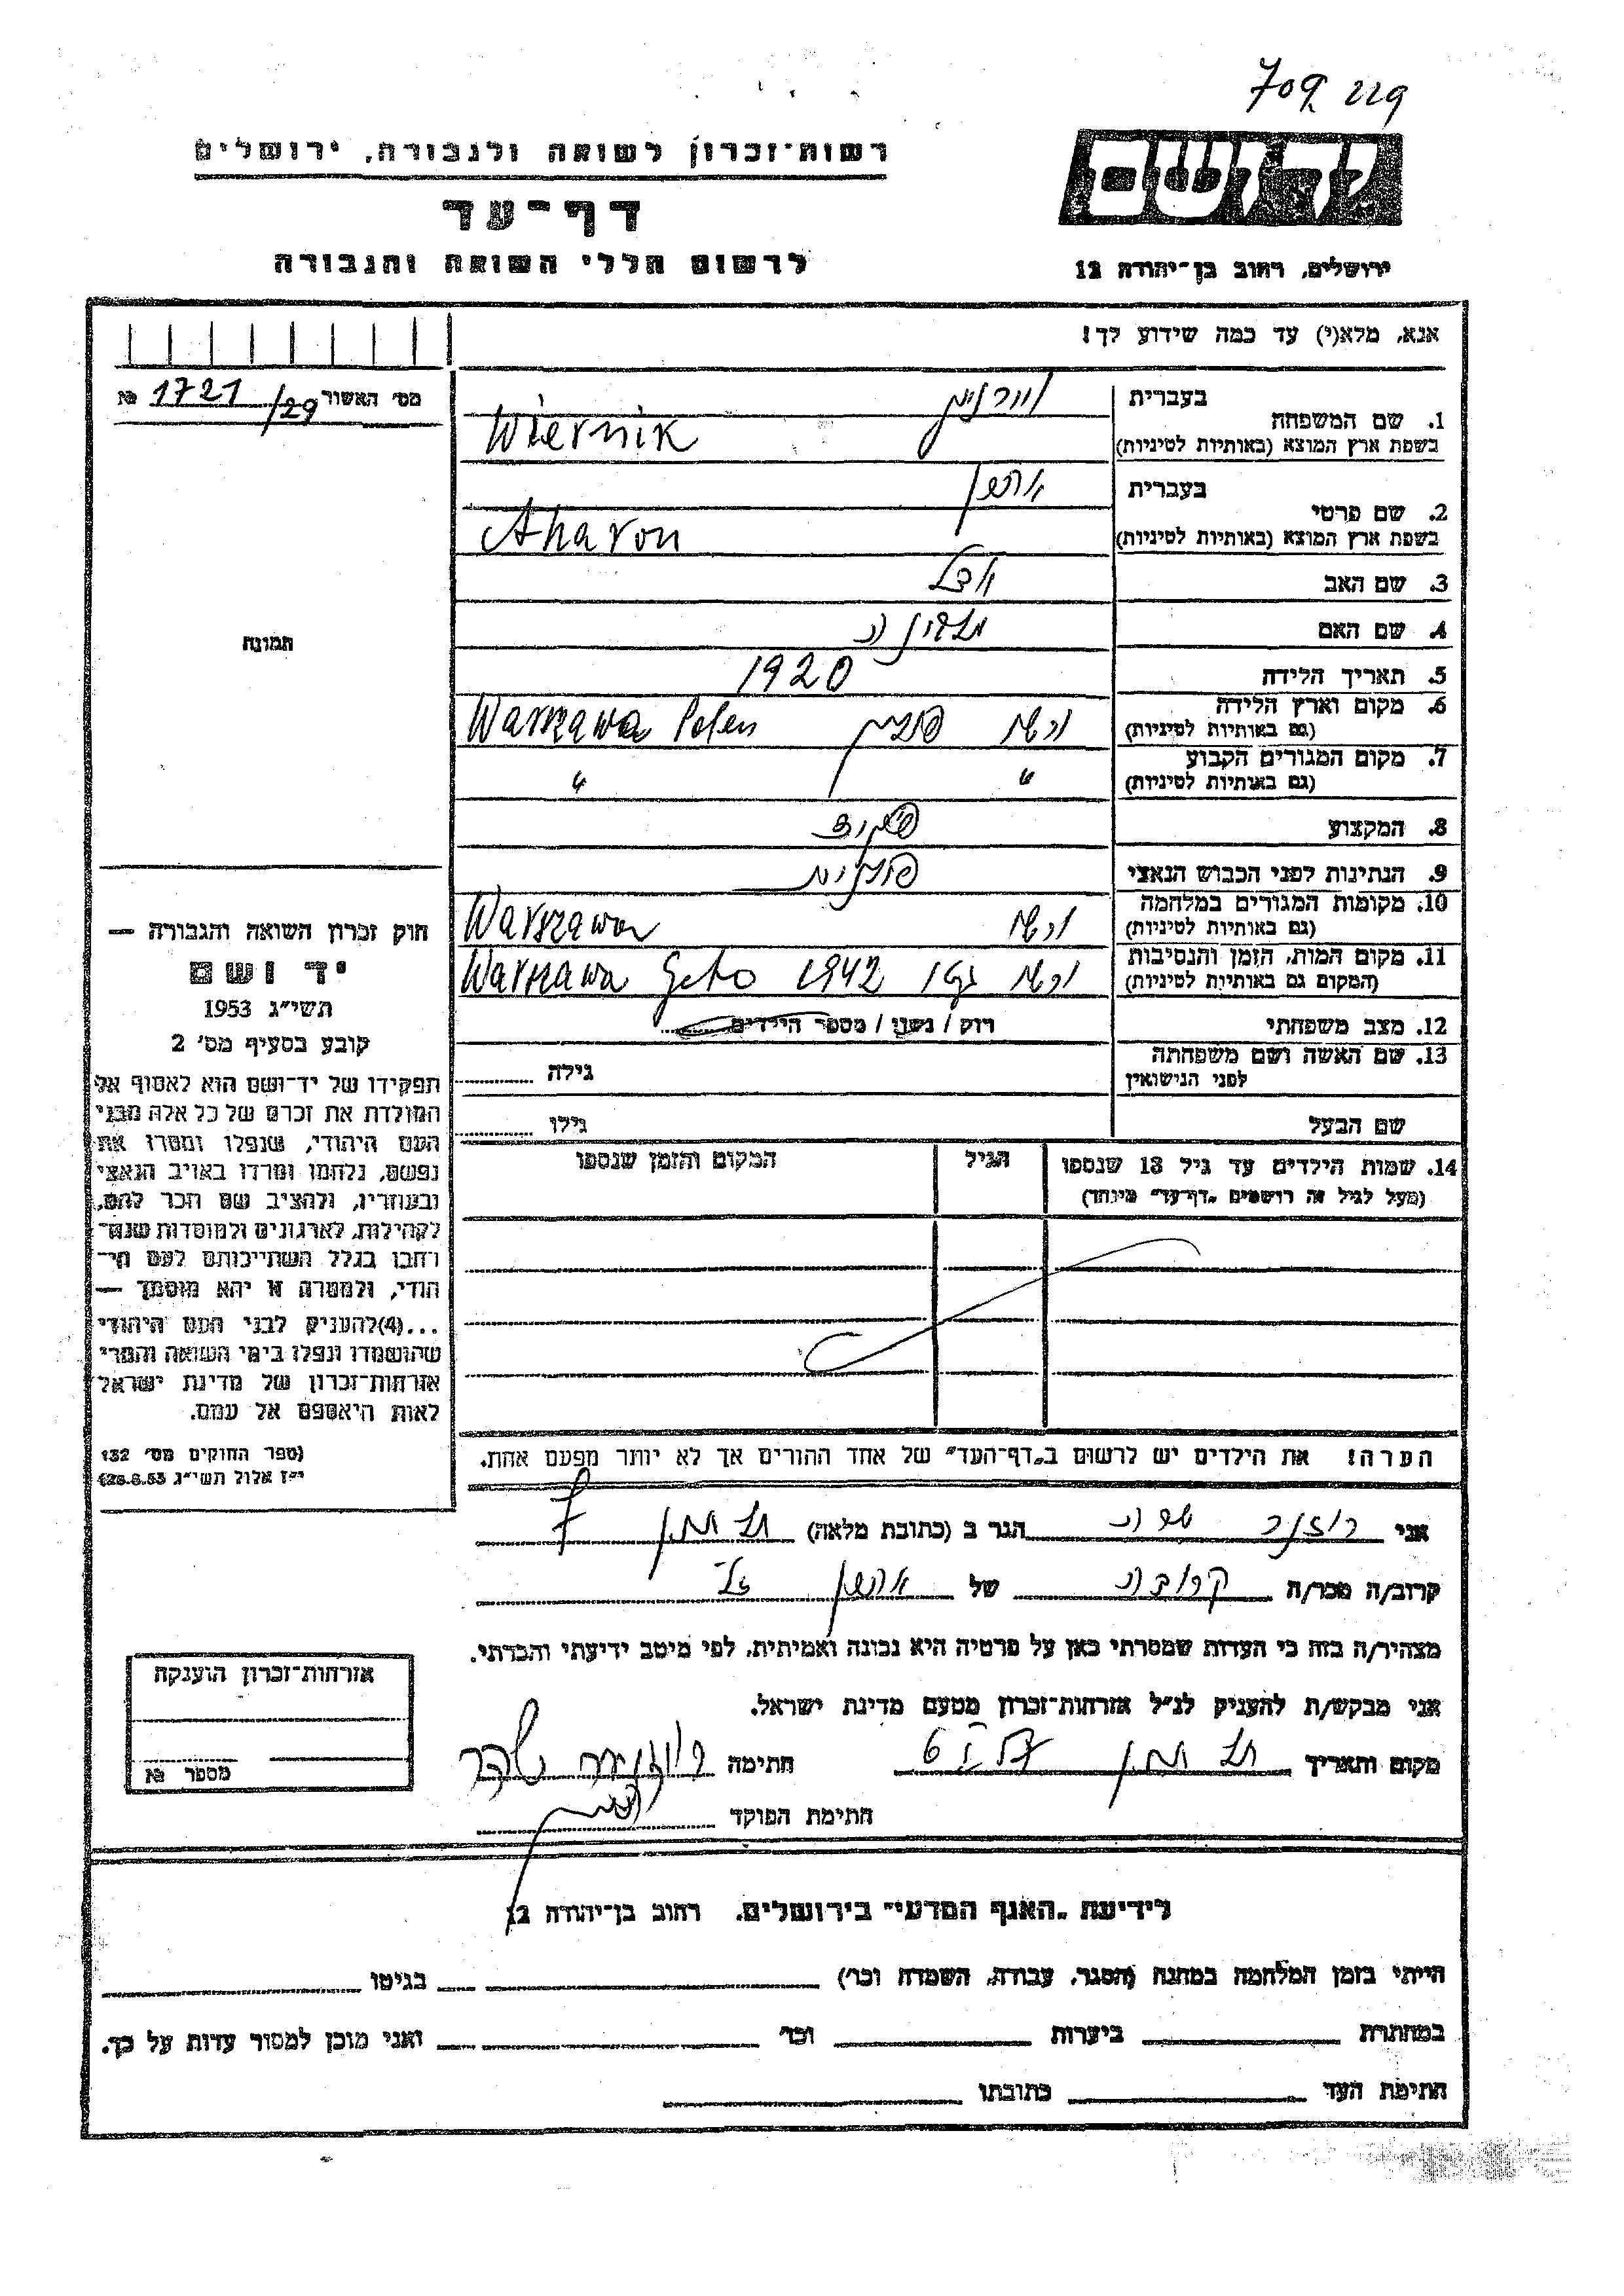 709 229
יד ושם
רשות־זכרון לשואה ולגבורה, ירושלים
דף־עד
לרשום חללי השואה והגבורה
ירושלים, רחוב בן־יהודה 12
אנא, מלא(י) עד כמה שידוע לך!
מס׳ האשור 1721/29 №
1. שם המשפחה
בעברית
בשפת ארץ המוצא (באותיות לטיניות) Wiernik
2. שם פרטי
בעברית אהרון
בשפת ארץ המוצא (באותיות לטיניות) Aharon
3. שם האב
4. שם האם
5. תאריך הלידה 1920
6. מקום וארץ הלידה
(גם באותיות לטיניות) ורשה פולין Warszawa Polen
7. מקום המגורים הקבוע
(גם באותיות לטיניות) " "
8. המקצוע
9. הנתינות לפני הכבוש הנאצי פולנית
10. מקומות המגורים במלחמה
(גם באותיות לטיניות) ורשה Warszawa
11. מקום המות, הזמן והנסיבות
(המקום גם באותיות לטיניות) ורשה גטו 1942 Warszawa Geto
12. מצב משפחתי רוק / נשוי / מספר הילדים
13. שם האשה ושם משפחתה
לפני הנישואין גילה
שם הבעל גילו
14. שמות הילדים עד גיל 13 שנספו
(מעל לגיל זה רושמים „דף־עד” מיוחד)
הגיל
המקום והזמן שנספו
הערה! את הילדים יש לרשום ב„דף־העד” של אחד ההורים אך לא יותר מפעם אחת.
תמונה
חוק זכרון השואה והגבורה —
יד ושם
תשי״ג 1953
קובע בסעיף מס׳ 2
תפקידו של יד־ושם הוא לאסוף אל
המולדת את זכרם של כל אלה מבני
העם היהודי, שנפלו ומסרו את
נפשם, נלחמו ומרדו באויב הנאצי
ובעוזריו, ולהציב שם וזכר להם,
לקהילות, לארגונים ולמוסדות שנח־
רבו בגלל השתייכותם לעם הי־
הודי, ולמטרה זו יהא מוסמך —
...(4)להעניק לבני העם היהודי
שהושמדו ונפלו בימי השואה והמרי
אזרחות־זכרון של מדינת ישראל
לאות היאספם אל עמם.
(ספר החוקים מס׳ 132
י״ז אלול תשי״ג 28.8.53)
אני הגר ב (כתובת מלאה)
קרוב/ה מכר/ה קרובה של אהרון ז״ל
מצהיר/ה בזה כי העדות שמסרתי כאן על פרטיה היא נכונה ואמיתית, לפי מיטב ידיעתי והכרתי.
אני מבקש/ת להעניק לנ״ל אזרחות־זכרון מטעם מדינת ישראל.
מקום ותאריך חתימה
חתימת הפוקד
אזרחות־זכרון הוענקה
מספר №
לידיעת „האגף המדעי” בירושלים, רחוב בן־יהודה 12
הייתי בזמן המלחמה במחנה (הסגר, עבודה, השמדה וכו׳) בגיטו
במחתרת ביערות וכו׳ ואני מוכן למסור עדות על כך.
חתימת העד כתובתו